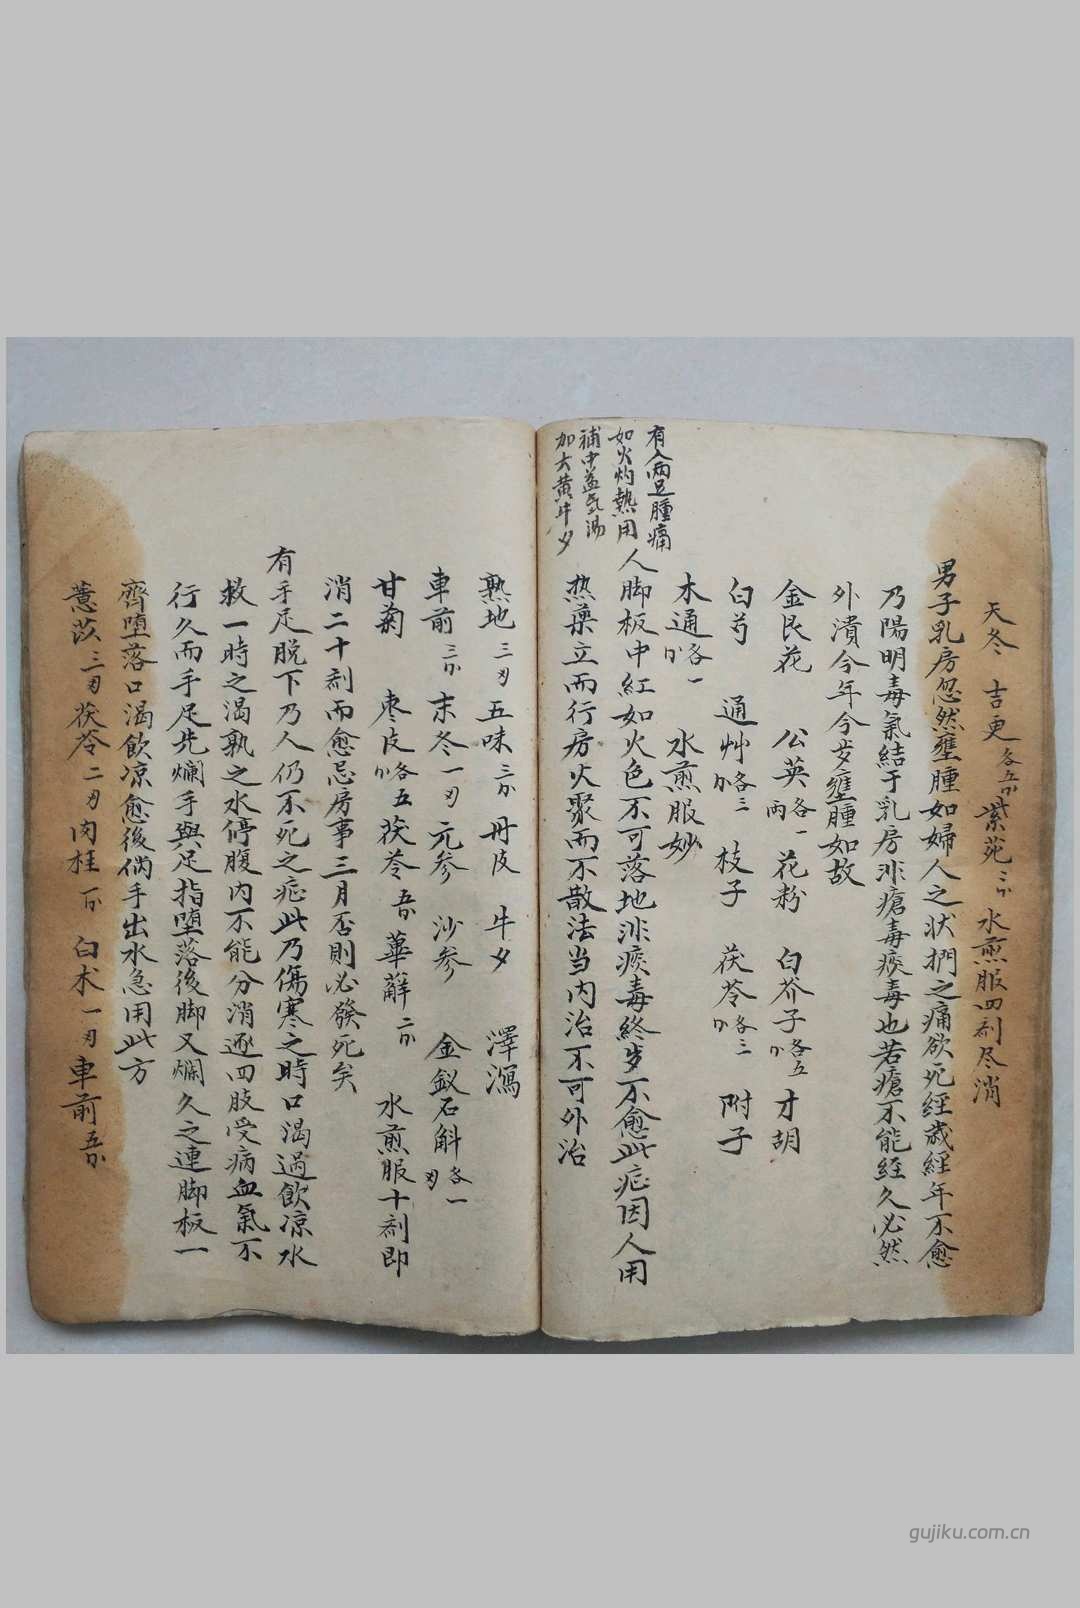 天冬 吉更各五分 紫苑三分 水煎服四剂尽消
男子乳房忽然壅腫如婦人之状捫之痛欲死經歲經年不愈
乃陽明毒氣結于乳房非瘡毒痰毒也若瘡不能経久必然
外潰今年今岁壅腫如故
金艮花 公英各一両 花粉 白芥子各五分 才胡
白芍 通艸各三分 枝子 茯苓各三分 附子
木通各一分 水煎服妙
有人両足腫痛
如火灼熱用
補中益气湯
加大黄牛夕
人脚板中紅如火色不可落地非痰毒終岁不愈此症因人用
热藥立而行房火聚而不散法当内治不可外治
熟地三刄 五味三分 丹皮 牛夕 澤瀉
車前三分 末冬一刄 元参 沙参 金釵石斛各一刄
甘菊 枣皮各五分 茯苓五分 萆薢二分 水煎服十剂即
消二十剂而愈忌房事三月否則必發死矣
有手足脱下乃人仍不死之症此乃傷寒之時口渴過飲凉水
救一時之渴孰之水停腹内不能分消逐四肢受病血氣不
行久而手足先爛手與足指堕落後脚又爛久之連脚板一
齊堕落口渴飲凉愈後倘手出水急用此方
薏苡三刄 茯苓二刄 肉桂一分 白术一刄 車前五分
gujiku.com.cn